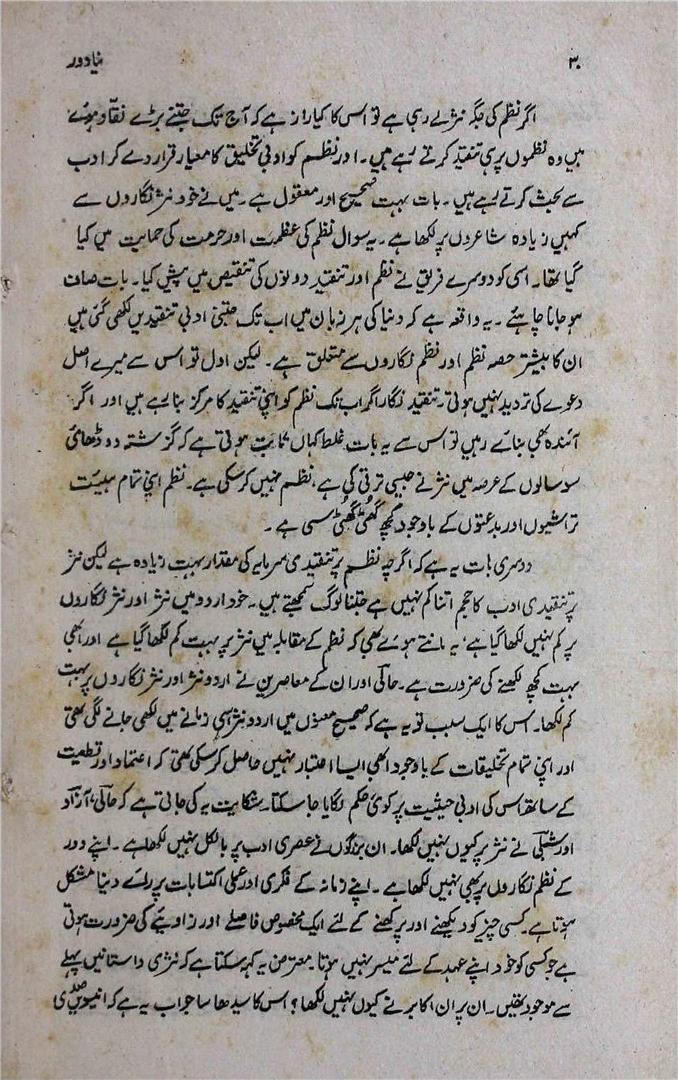 ۳۰ نیا دور
اگر نظم کی جگہ نثر لے رہی ہے تو اس کا کیا راز ہے کہ آج تک جتنے بڑے نقاد ہوئے
ہیں وہ نظموں پر ہی تنقید کرتے رہے ہیں۔ اور نظم کو ادبی تخلیق کا معیار قرار دے کر ادب
سے بحث کرتے رہے ہیں۔ بات بہت صحیح اور معقول ہے۔ میں نے خود نثر نگاروں سے
کہیں زیادہ شاعروں پر لکھا ہے۔ یہ سوال نظم کی عظمت اور حرمت کی حمایت میں کیا
گیا تھا۔ اسی کو دوسرے فریق نے نظم اور تنقید دونوں کی تنقیص میں پیش کیا۔ بات صاف
ہو جانا چاہئے۔ یہ واقعہ ہے کہ دنیا کی ہر زبان میں اب تک جتنی ادبی تنقیدیں لکھی گئی ہیں
ان کا بیشتر حصہ نظم اور نظم نگاروں سے متعلق ہے۔ لیکن اول تو اس سے میرے اصل
دعوے کی تردید نہیں ہوتی۔ تنقید نگار اگر اب تک نظم کو اپنی تنقید کا مرکز بنا رہے ہیں اور اگر
آئندہ بھی بنائے رہیں تو اس سے یہ بات غلط کہاں ثابت ہوتی ہے کہ گزشتہ دو ڈھائی
سو سالوں کے عرصہ میں نثر نے جیسی ترقی کی ہے، نظم نہیں کر سکی ہے۔ نظم اپنی تمام ہیئت
تراشیوں اور بدعتوں کے باوجود کچھ گھُٹی گھُٹی سی ہے۔
دوسری بات یہ ہے کہ اگرچہ نظم پر تنقیدی سرمایہ کی مقدار بہت زیادہ ہے لیکن نثر
پر تنقیدی ادب کا حجم اتنا کم نہیں ہے جتنا لوگ سمجھتے ہیں۔ خود اردو میں نثر اور نثر نگاروں
پر کم نہیں لکھا گیا ہے، یہ مانتے ہوئے بھی کہ نظم کے مقابلہ میں نثر پر بہت کم لکھا گیا ہے اور ابھی
بہت کچھ لکھنے کی ضرورت ہے۔ حالی اور ان کے معاصرین نے اردو نثر اور نثر نگاروں پر بہت
کم لکھا۔ اس کا ایک سبب تو یہ ہے کہ صحیح معنوں میں اردو نثر اسی زمانے میں لکھی جانے لگی تھی
اور اپنی تمام تخلیقات کے باوجود ابھی ایسا اعتبار نہیں حاصل کر سکی تھی کہ اعتماد اور قطعیت
کے ساتھ اس کی ادبی حیثیت پر کوئی حکم لگایا جا سکتا۔ شکایت یہ کی جاتی ہے کہ حالی، آزاد
اور شبلی نے نثر پر کیوں نہیں لکھا۔ ان بزرگوں نے عصری ادب پر بالکل نہیں لکھا ہے۔ اپنے دور
کے نظم نگاروں پر بھی نہیں لکھا ہے۔ اپنے زمانہ کے فکری اور عملی اکتسابات پر رائے دینا مشکل
ہوتا ہے۔ کسی چیز کو دیکھنے اور پرکھنے کے لئے ایک مخصوص فاصلے اور زاویئے کی ضرورت ہوتی
ہے جو کسی کو خود اپنے عہد کے لئے میسر نہیں ہوتا۔ معترض یہ کہہ سکتا ہے کہ نثری داستانیں پہلے
سے موجود تھیں۔ ان پر ان اکابر نے کیوں نہیں لکھا؟ اس کا سیدھا سا جواب یہ ہے کہ انیسویں صدی